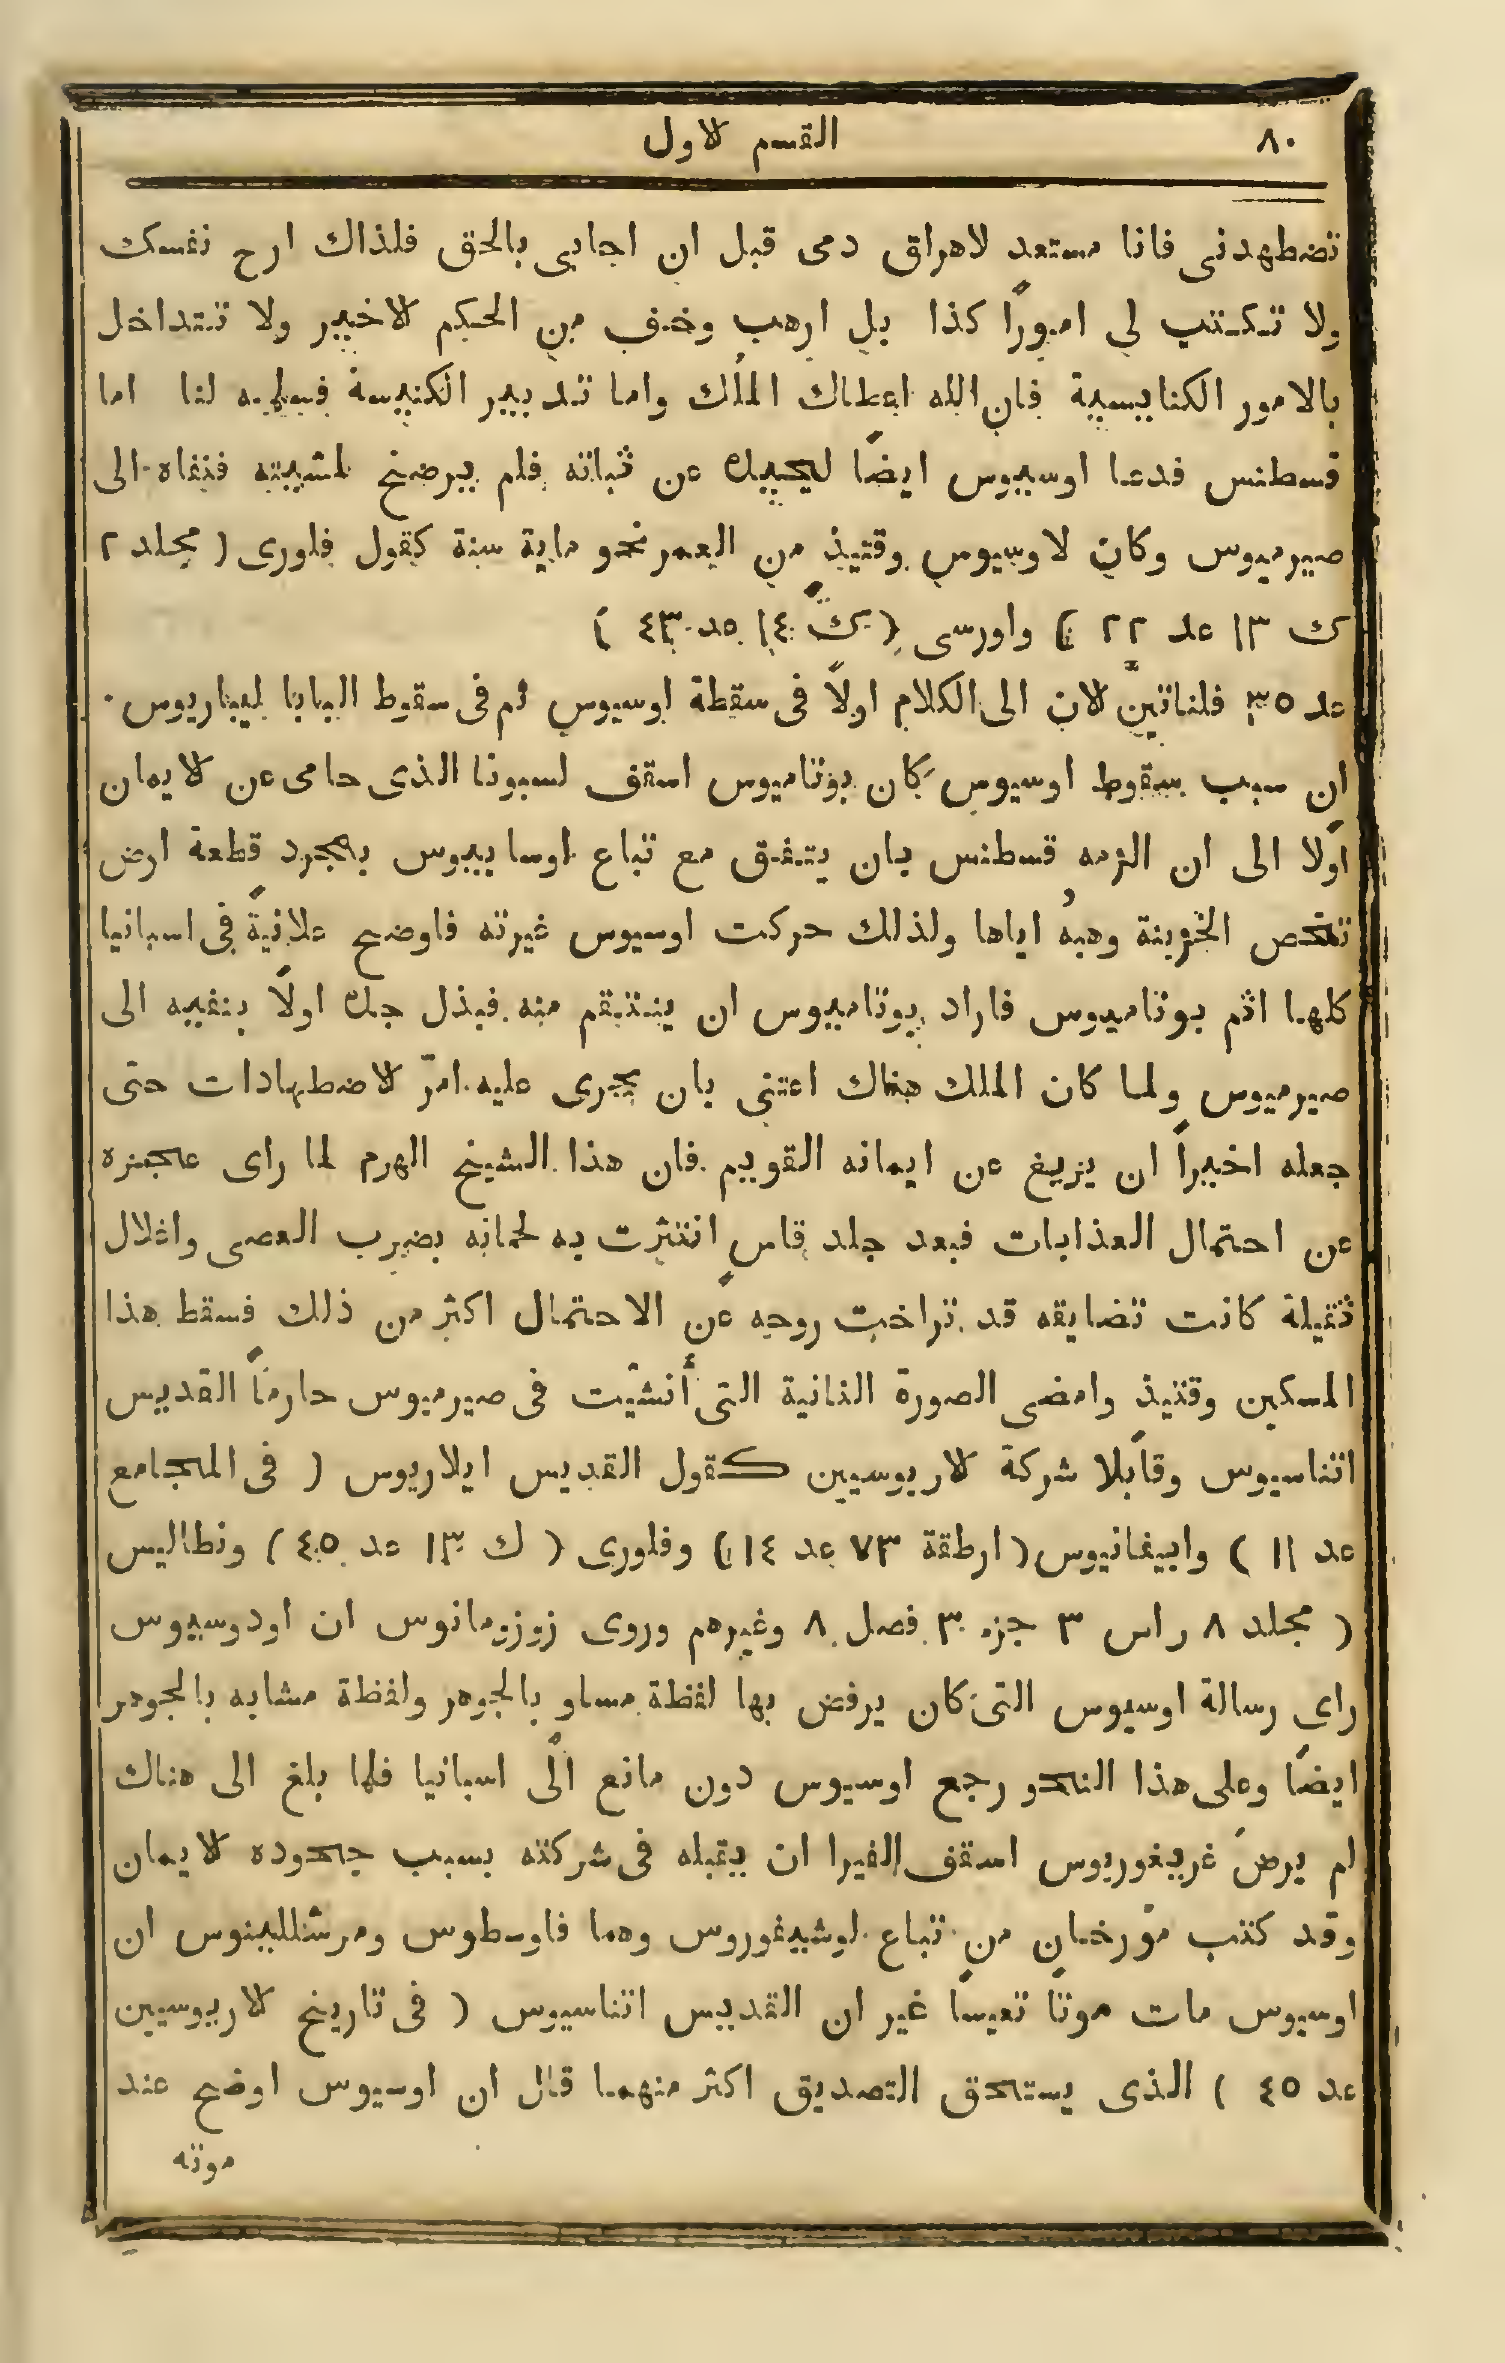 ٨٠ القسم الاول
تضطهدنى فانا مستعد لاهراق دمى قبل ان اجابى بالحق فلذاك ارح نفسك
ولا تكتب لى امورًا كذا بل ارهب وخف من الحكم الاخير ولا تتداخل
بالامور الكنايسية فان الله اعطاك الملك واما تدبير الكنيسة فسلمه لنا اما
قسطنس فدعا اوسيوس ايضًا ليحيده عن ثباته فلم يرضخ لمشيته فنفاه الى
صيرميوس وكان لاوسيوس وقتيذ من العمر نحو ماية سنة كقول فلورى ( مجلد ٢
ك ١٣ عد ٢٢ ) واورسى ( ك ١٤ عد ٤٣ )
عد ٣٥ فلناتين الان الى الكلام اولاً فى سقطة اوسيوس ثم فى سقوط البابا ليباريوس
ان سبب سقوط اوسيوس كان بوتاميوس اسقف لسبونا الذى حامى عن الايمان
اولا الى ان الزمه قسطنس بان يتفق مع تباع اوسابيوس بمجرد قطعة ارض
تختص الخزينة وهبه اياها ولذلك حركت اوسيوس غيرته فاوضح علانيةً فى اسبانيا
كلها اثم بوتاميوس فاراد بوتاميوس ان ينتقم منه فبذل جده اولاً بنفيه الى
صيرميوس ولما كان الملك هناك اعتنى بان يجرى عليه امرّ الاضطهادات حتى
جعله اخيراً ان يزيغ عن ايمانه القويم فان هذا الشيخ الهرم لما راى عجزه
عن احتمال العذابات فبعد جلد قاسٍ انتثرت به لحمانه بضرب العصى واغلال
ثقيلة كانت تضايقه قد تراخت روحه عن الاحتمال اكثر من ذلك فسقط هذا
المسكين وقتيذ وامضى الصورة الثانية التى أنشيت فى صيرميوس حارمًا القديس
اتناسيوس وقابلا شركة الاريوسيين كقول القديس ايلاريوس ( فى المجامع
عد ١١ ) وابيفانيوس ( ارطقة ٧٣ عد ١٤ ) وفلورى ( ك ١٣ عد ٤٥ ) ونطاليس
( مجلد ٨ راس ٣ جزء ٣ فصل ٨ وغيرهم وروى زوزومانوس ان اودوسيوس
راى رسالة اوسيوس التى كان يرفض بها لفظة مساو بالجوهر ولفظة مشابه بالجوهر
ايضًا وعلى هذا النحو رجع اوسيوس دون مانع الى اسبانيا فلما بلغ الى هناك
لم يرضَ غريغوريوس اسقف الفيرا ان يقبله فى شركته بسبب جحوده الايمان
وقد كتب مورخان من تباع لوشيفوروس وهما فاوسطوس ومرشللينوس ان
اوسيوس مات موتًا تعيسًا غير ان القديس اتناسيوس ( فى تاريخ الاريوسيين
عد ٤٥ ) الذى يستحق التصديق اكثر منهما قال ان اوسيوس اوضح عند
موته